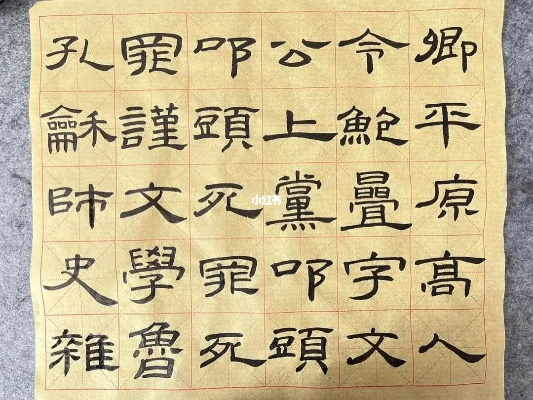 卿平原高人
令鮑疊字文
公上黨叩頭
叩頭死罪死
罪謹文學魯
孔龢師史雜
小红书